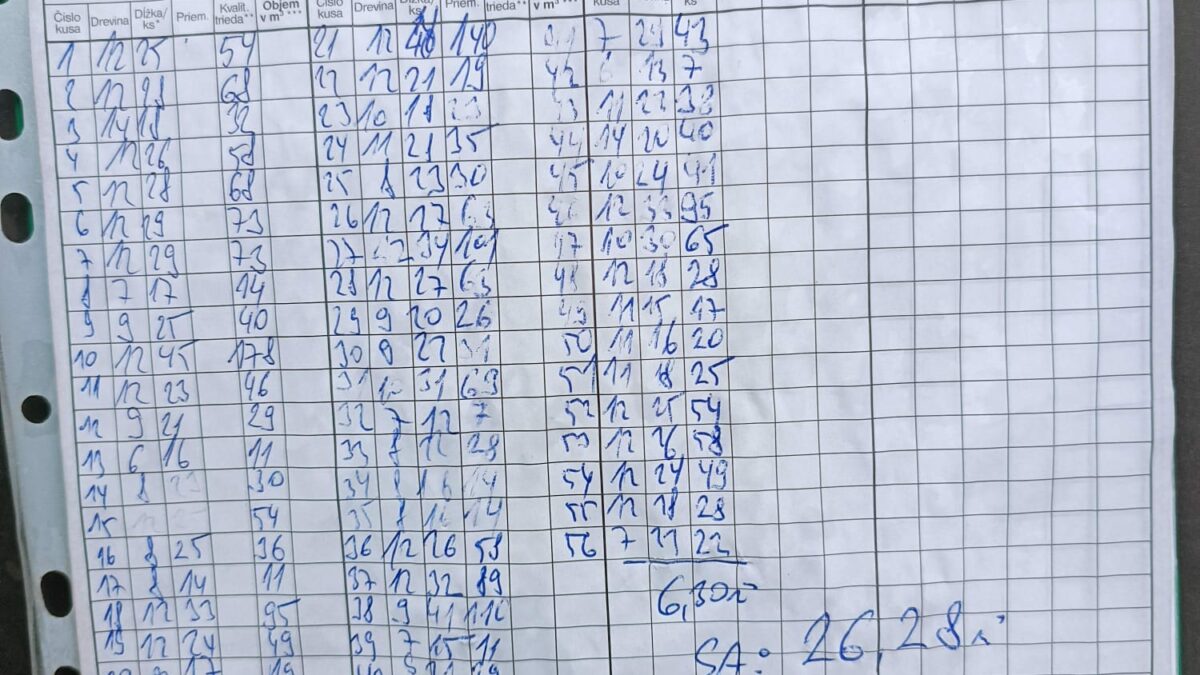 Číslo kusa Drevina Dĺžka/ ks* Priem. Kvalit. trieda** Objem v m³ *** Číslo kusa Drevina Dĺžka/ ks* Priem. trieda** v m³ kusa ks
1 12 25 54 21 12 140 7 43
2 12 28 68 22 12 21 19 42 13 7
3 14 18 32 23 10 18 23 43 11 22 38
4 12 26 58 24 11 21 35 44 14 20 40
5 12 28 68 25 8 23 30 45 10 24 41
6 12 29 73 26 12 27 63 12 33 95
7 12 29 73 27 12 34 101 47 10 30 65
8 7 17 14 28 12 27 63 48 12 18 28
9 9 25 40 29 9 20 26 49 11 15 17
10 12 45 178 30 9 22 31 50 11 16 20
11 12 23 46 31 10 31 69 51 11 18 25
12 9 21 29 32 7 12 7 52 12 25 54
13 6 16 11 33 8 28 53 12 26 58
14 8 23 30 34 8 16 14 54 12 24 49
15 54 35 8 16 14 55 12 18 28
16 8 25 36 36 12 26 58 56 7 21 22
17 8 14 11 37 12 32 89
6,30
18 12 33 95 38 9 41 110
19 12 24 49 39 7 15 11
SA: 26,28
17 19